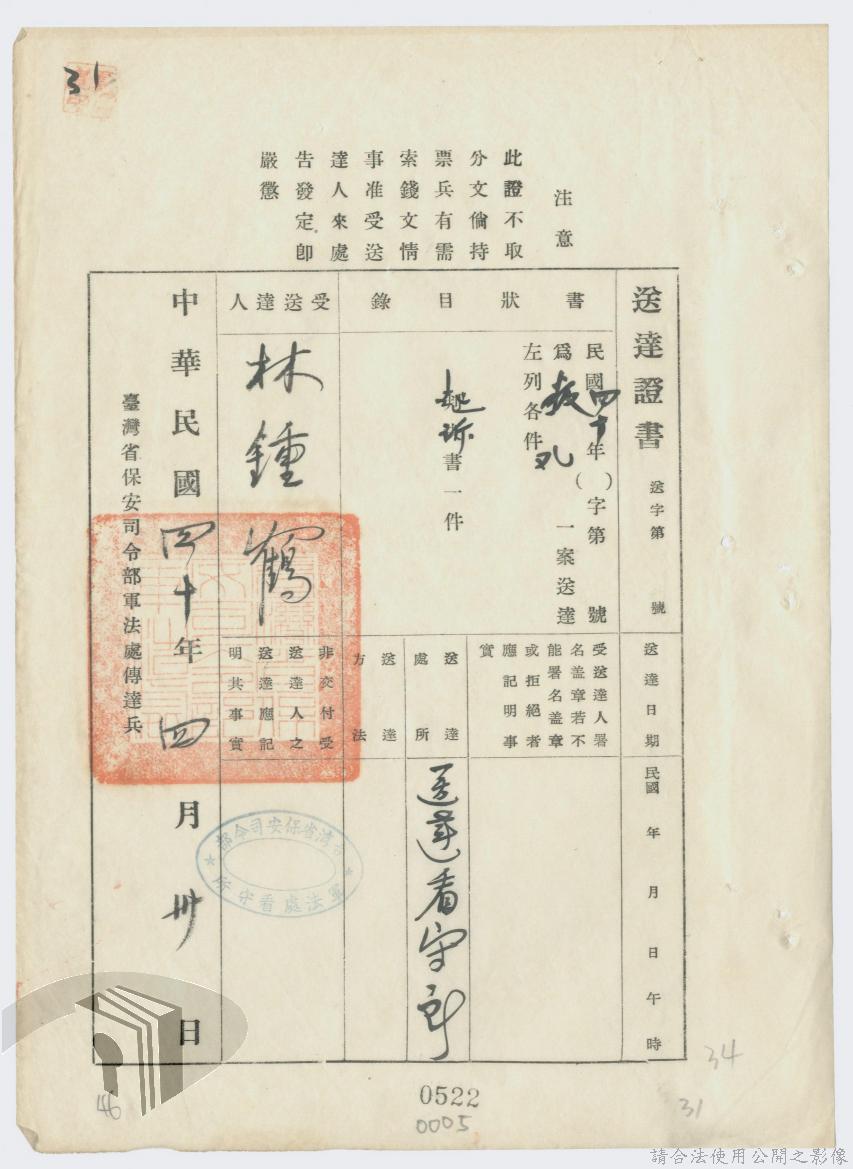 31
注意
此證不取
分文倘持
票兵有需
索錢文情
事准受送
達人來處
告發定卽
嚴懲
送達證書
送字第 號
書狀目錄
民國四十年( )字第 號
爲叛亂一案送達
左列各件
起訴書一件
受送達人
林鍾鶴
送達日期
民國 年 月 日午 時
受送達人署
名盖章若不
能署名盖章
或拒絕者
應記明事
實
送達
處所
送達看守所
送達
方法
非交付受
送達人之
送達應記
明其事實
中華民國四十年四月卅日
臺灣省保安司令部軍法處傳達兵
台湾省保安司令部
軍法處看守所
0522
0005
46
34
31
請合法使用公開之影像